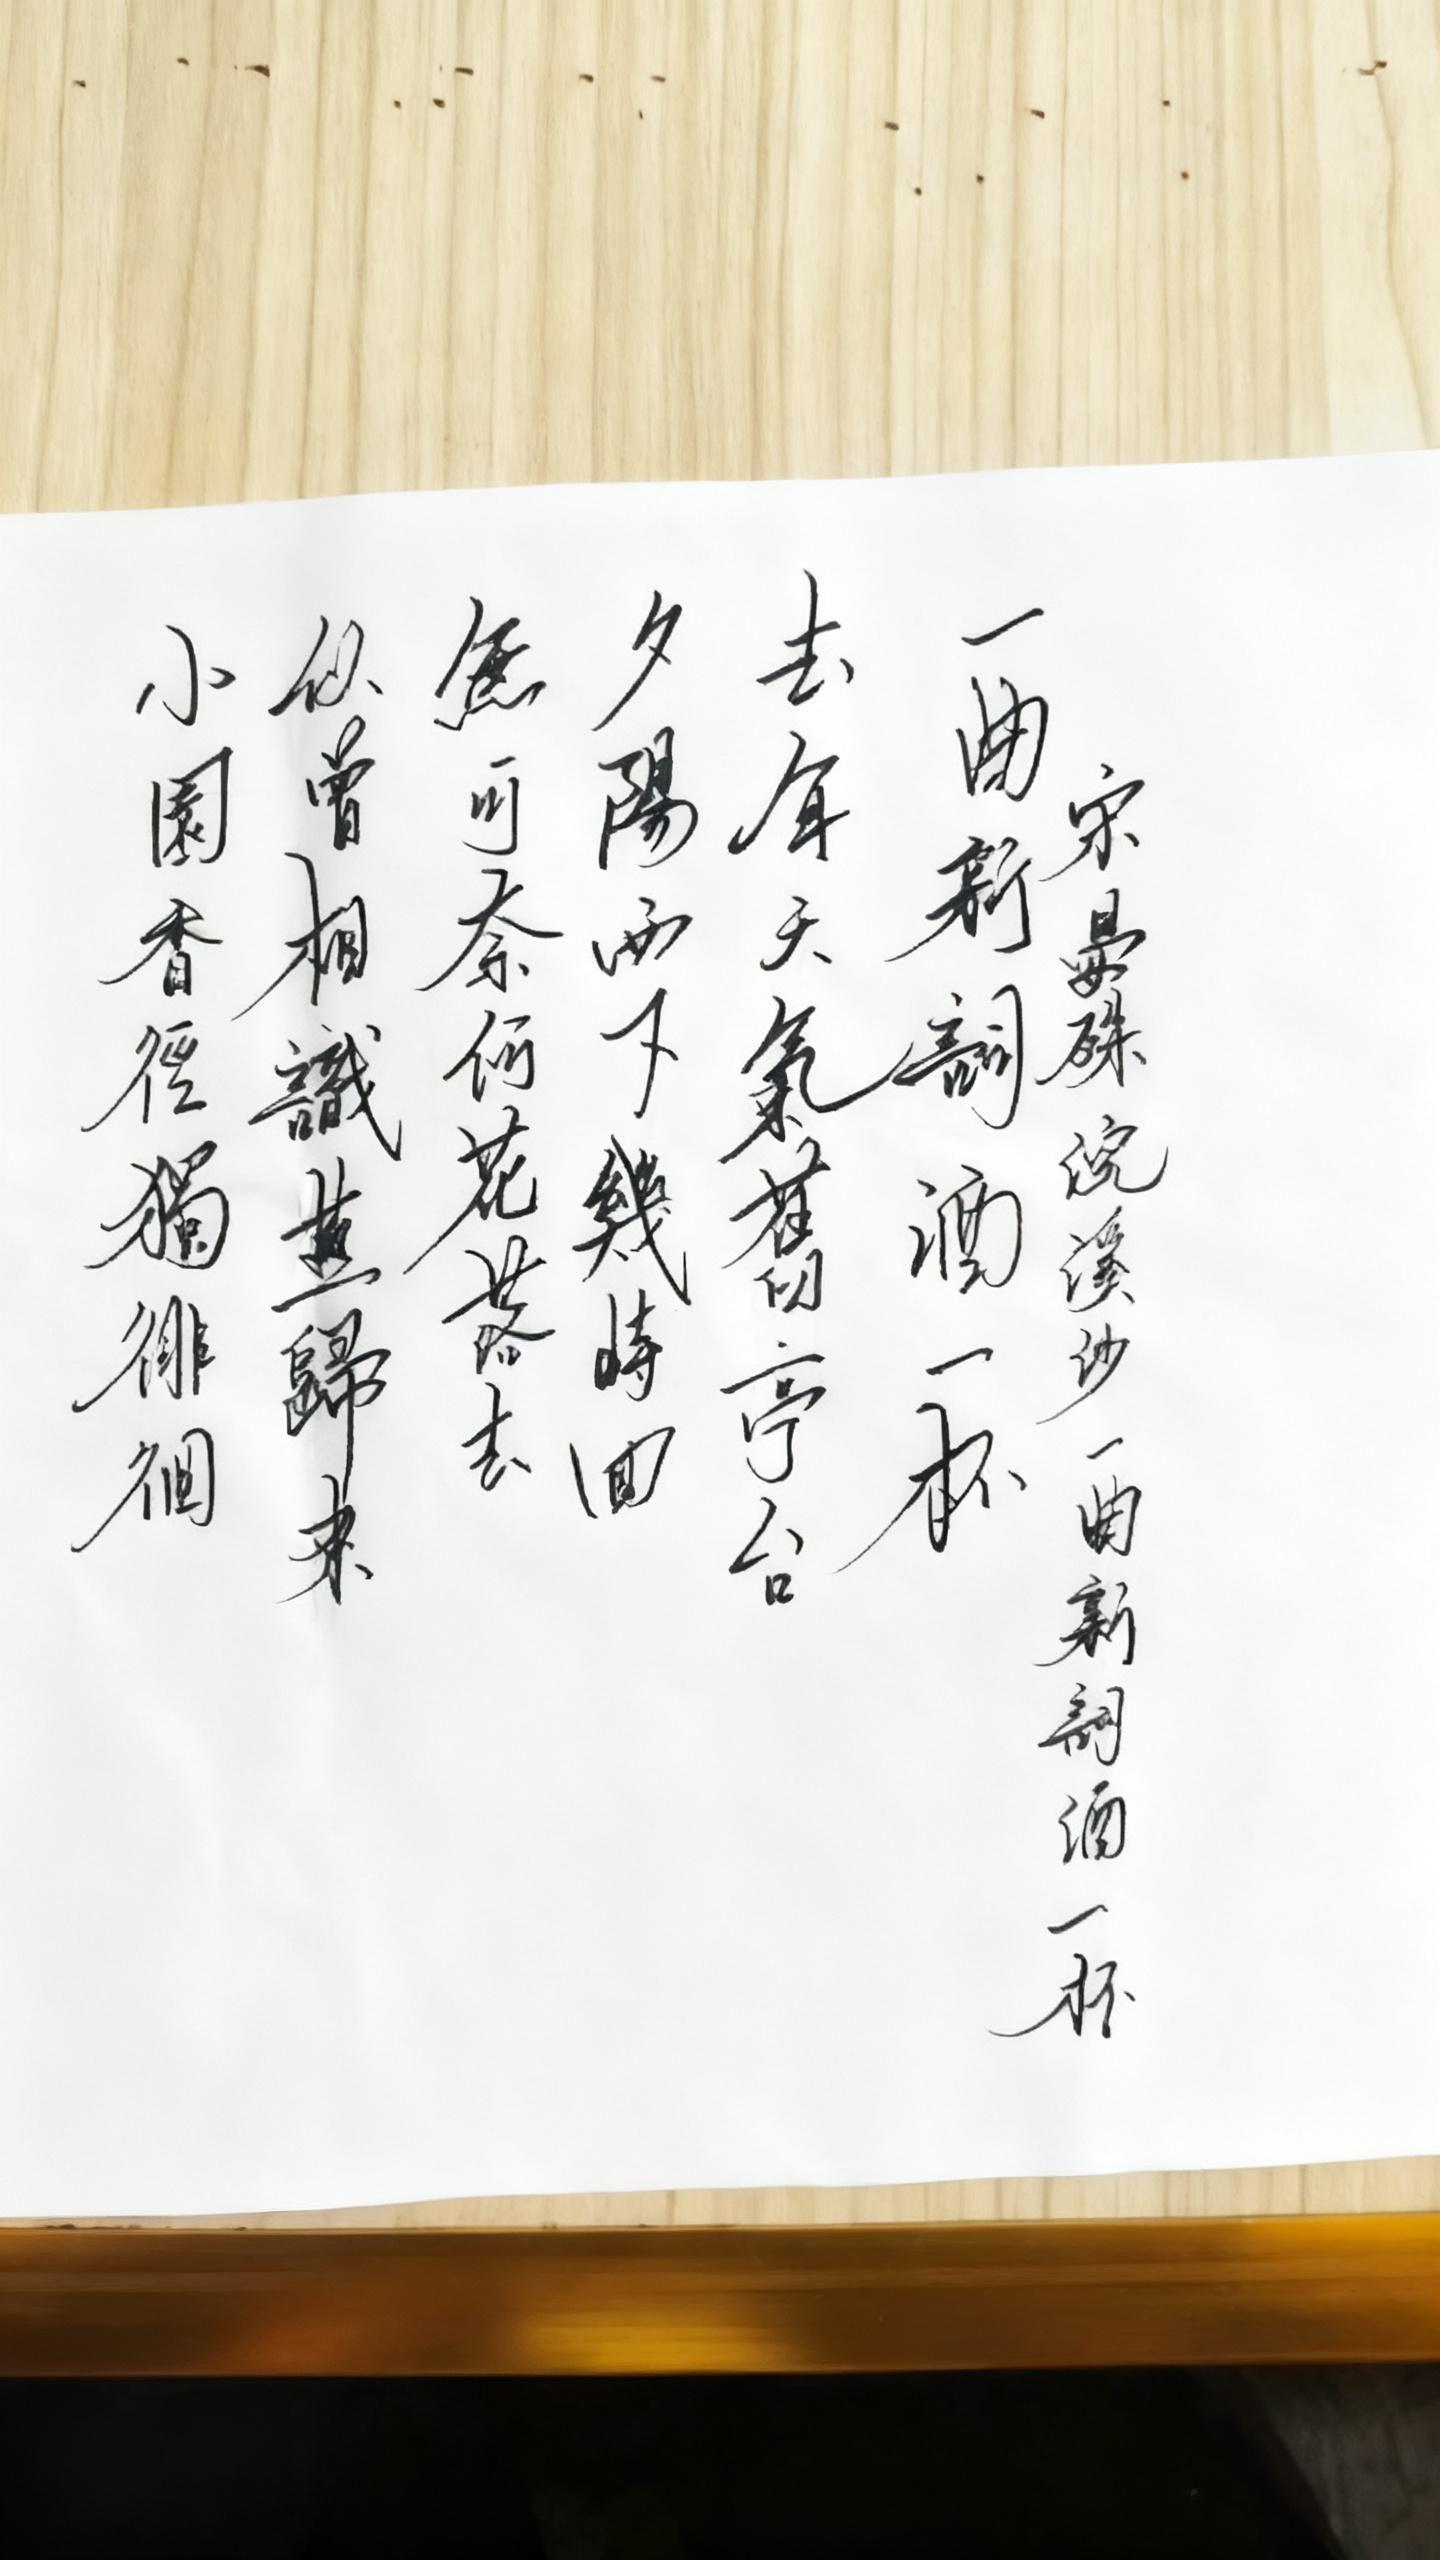 宋晏殊浣溪沙一曲新詞酒一杯
一曲新詞酒一杯
去年天氣舊亭台
夕陽西下幾時回
無可奈何花落去
似曾相識燕歸來
小園香徑獨徘徊